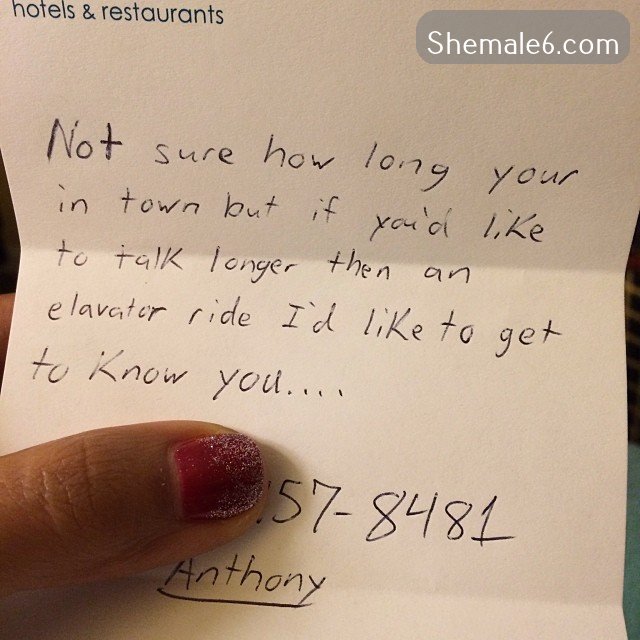 hotels & restaurants
Shemale6.com
Not sure how long your
in town but if you'd like
to talk longer then an
elavator ride I'd like to get
to know you....
57-8481
Anthony